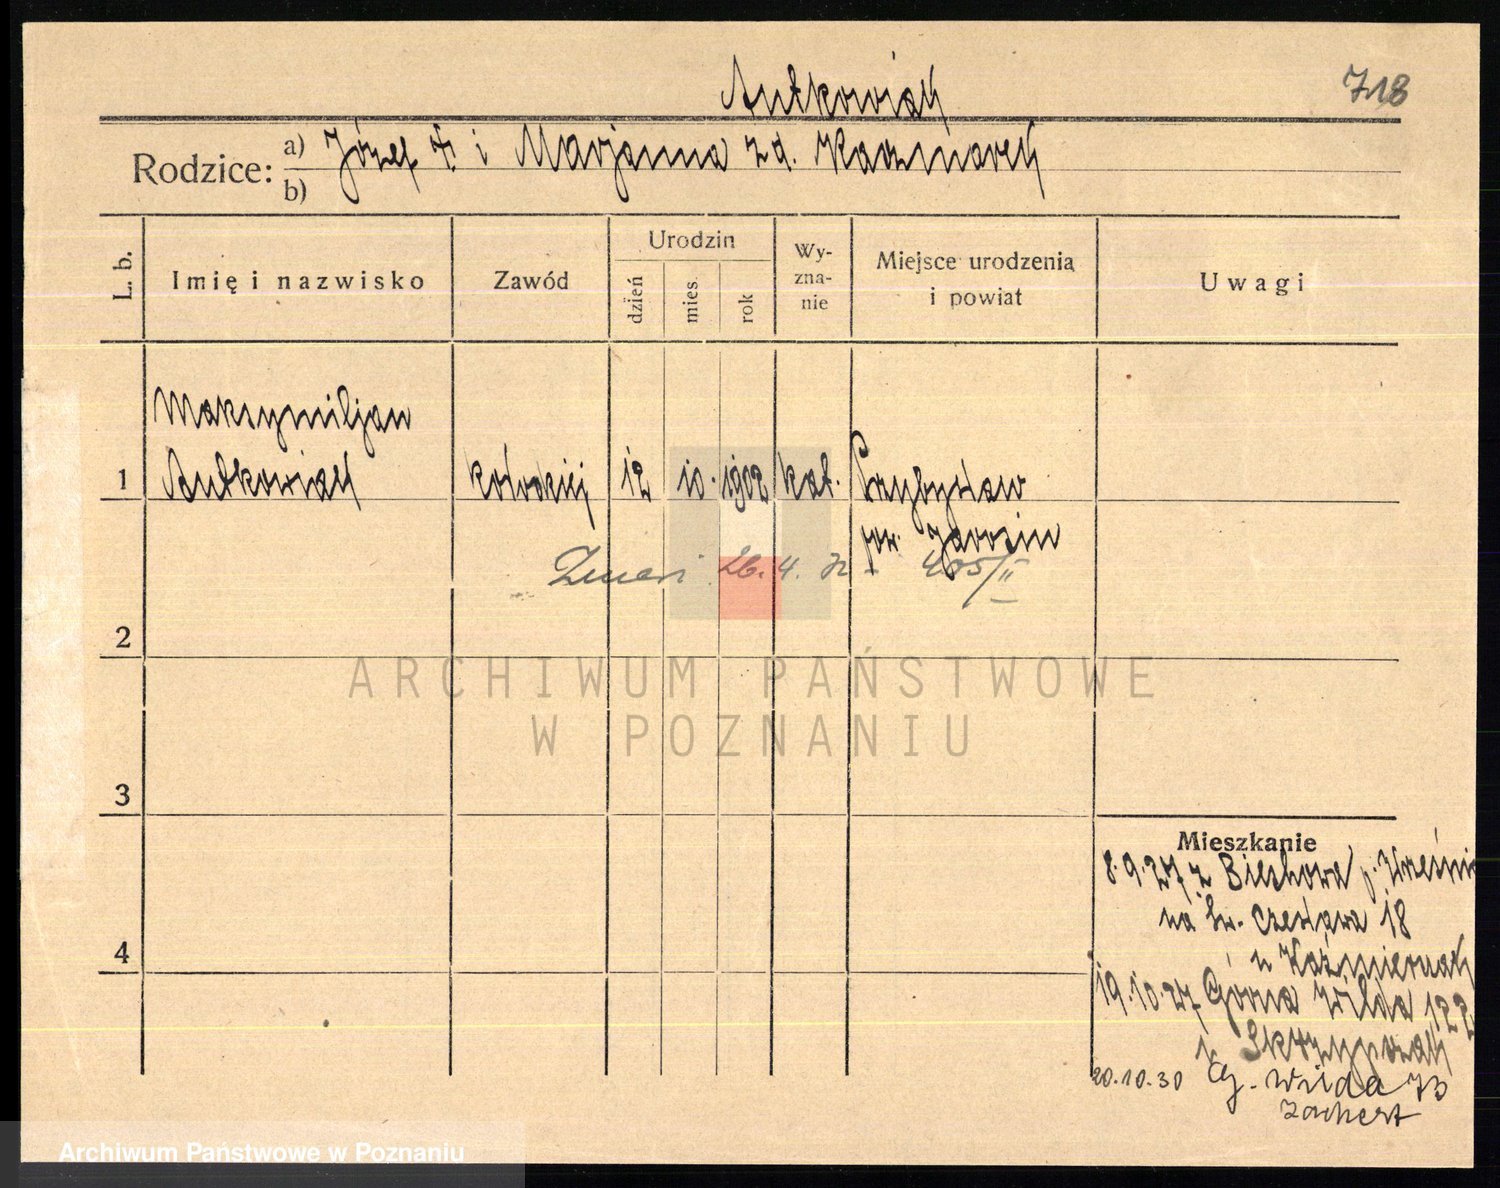 Antkowiak
718
Rodzice: a) Józef † i Marjanna z d. Kaczmarek
b)
L. b.
Imię i nazwisko
Zawód
Urodzin
dzień
mies.
rok
Wy-
zna-
nie
Miejsce urodzenia
i powiat
Uwagi
Maksymiljan
1 Antkowiak kołodziej 12 10. 1902 kat. Przybysław
pow. Jarocin
26. 4. 405/II
2
ARCHIWUM PAŃSTWOWE
W POZNANIU
3
Mieszkanie
8.9.27 z p. Wrześni
na św. Czesława 18
4
u Kaźmierczak
19.10.27 Górna Wilda 122
u Skrzypczak
20.10.30 G. Wilda 73
Zachert
Archiwum Państwowe w Poznaniu